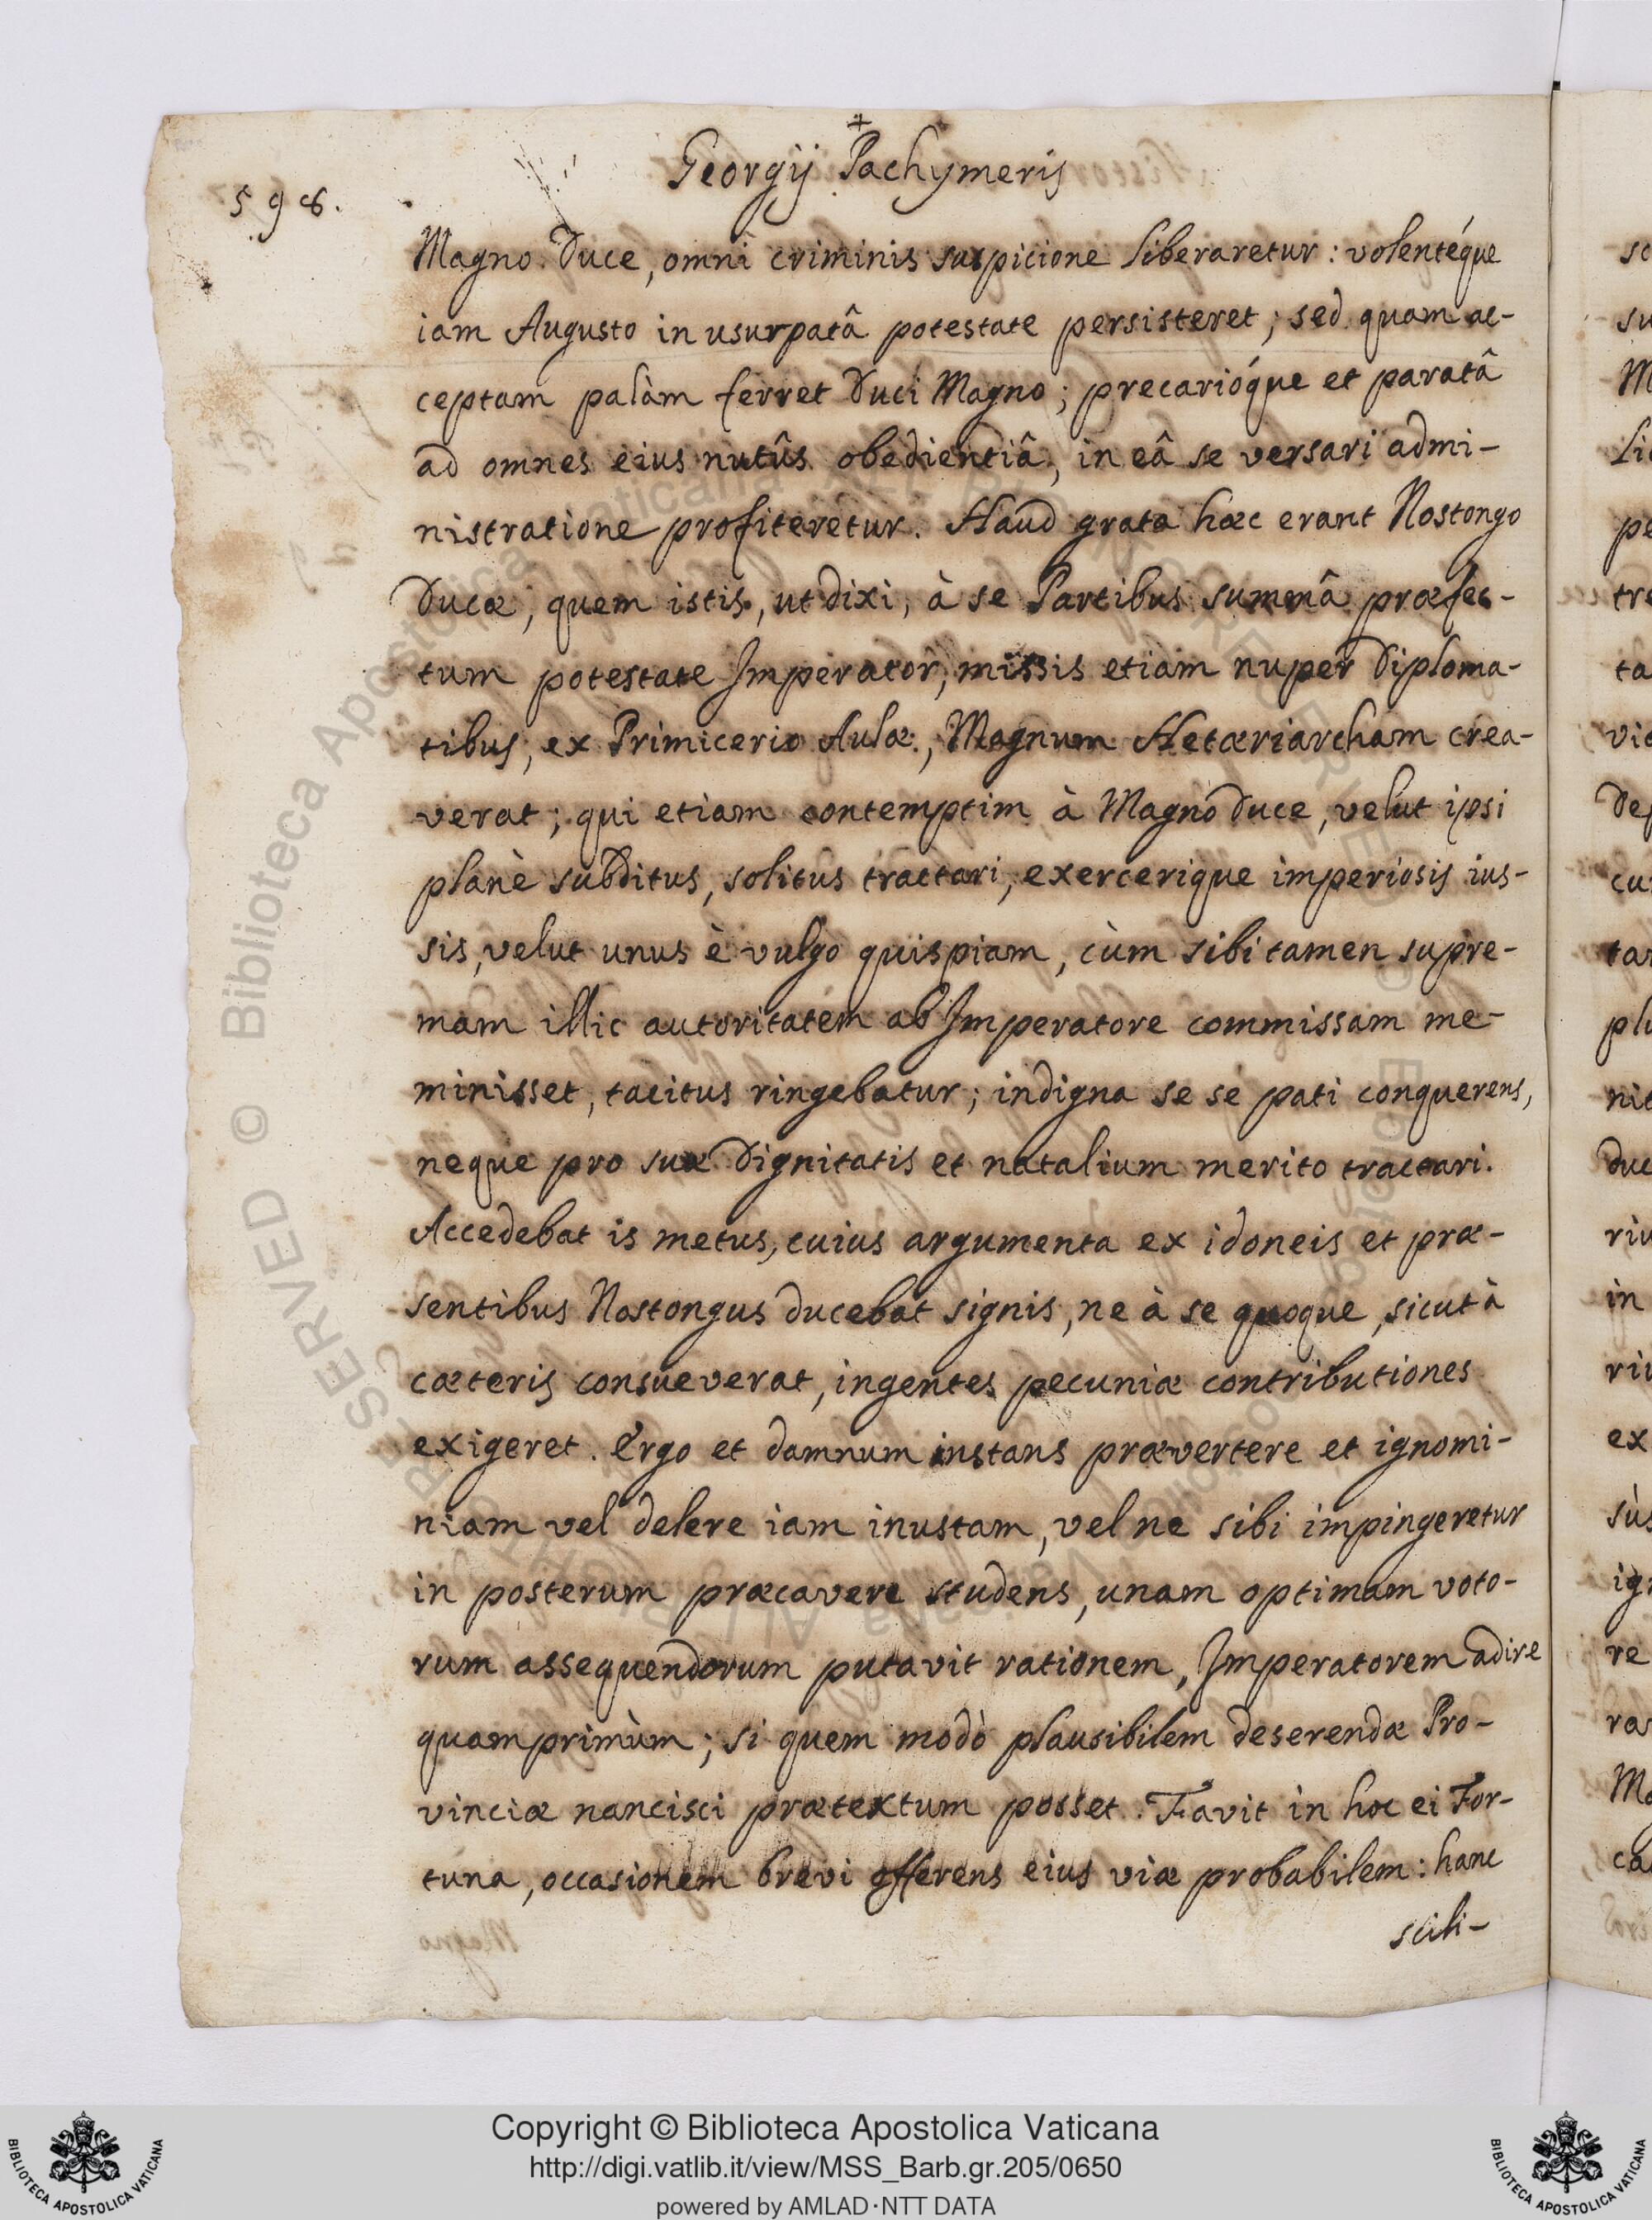 +
Georgij Pachymeris
598.
Magno Duce, omni criminis suspicione liberaretur: volentéque
iam Augusto in usurpatâ potestate persisteret; sed quam ac-
ceptam palàm ferret Duci Magno; precarióque et paratâ
ad omnes eius nutûs obedientiâ, in eâ se versari admi-
nistratione profiteretur. Haud grata hæc erant Nostongo
Ducæ, quem istis, ut dixi, à se Partibus summâ præfec-
tum potestate Imperator, missis etiam nuper Diploma-
tibus, ex Primicerio Aulæ, Magnum Hetæriarcham crea-
verat; qui etiam contemptim à Magno Duce, velut ipsi
planè subditus, solitus tractari, exercerique imperiosis ius-
sis, velut unus è vulgo quispiam, cùm sibi tamen supre-
mam illic autoritatem ab Imperatore commissam me-
minisset, tacitus ringebatur; indigna se se pati conquerens,
neque pro suæ Dignitatis et natalium merito tractari.
Accedebat is metus, cuius argumenta ex idoneis et præ-
sentibus Nostongus ducebat signis, ne à se quoque, sicut à
cæteris consueverat, ingentes pecuniæ contributiones
exigeret. Ergo et damnum instans prævertere et ignomi-
niam vel delere iam inustam, vel ne sibi impingeretur
in posterum præcavere studens, unam optimam voto-
rum assequendorum putavit rationem, Imperatorem adire
quamprimùm; si quem modò plausibilem deserendæ Pro-
vinciæ nancisci prætextum posset. Favit in hoc ei For-
tuna, occasionem brevi offerens eius viæ probabilem: hanc
scili-
Copyright © Biblioteca Apostolica Vaticana
http://digi.vatlib.it/view/MSS_Barb.gr.205/0650
powered by AMLAD·NTT DATA
BIBLIOTECA APOSTOLICA VATICANA
BIBLIOTECA APOSTOLICA VATICANA